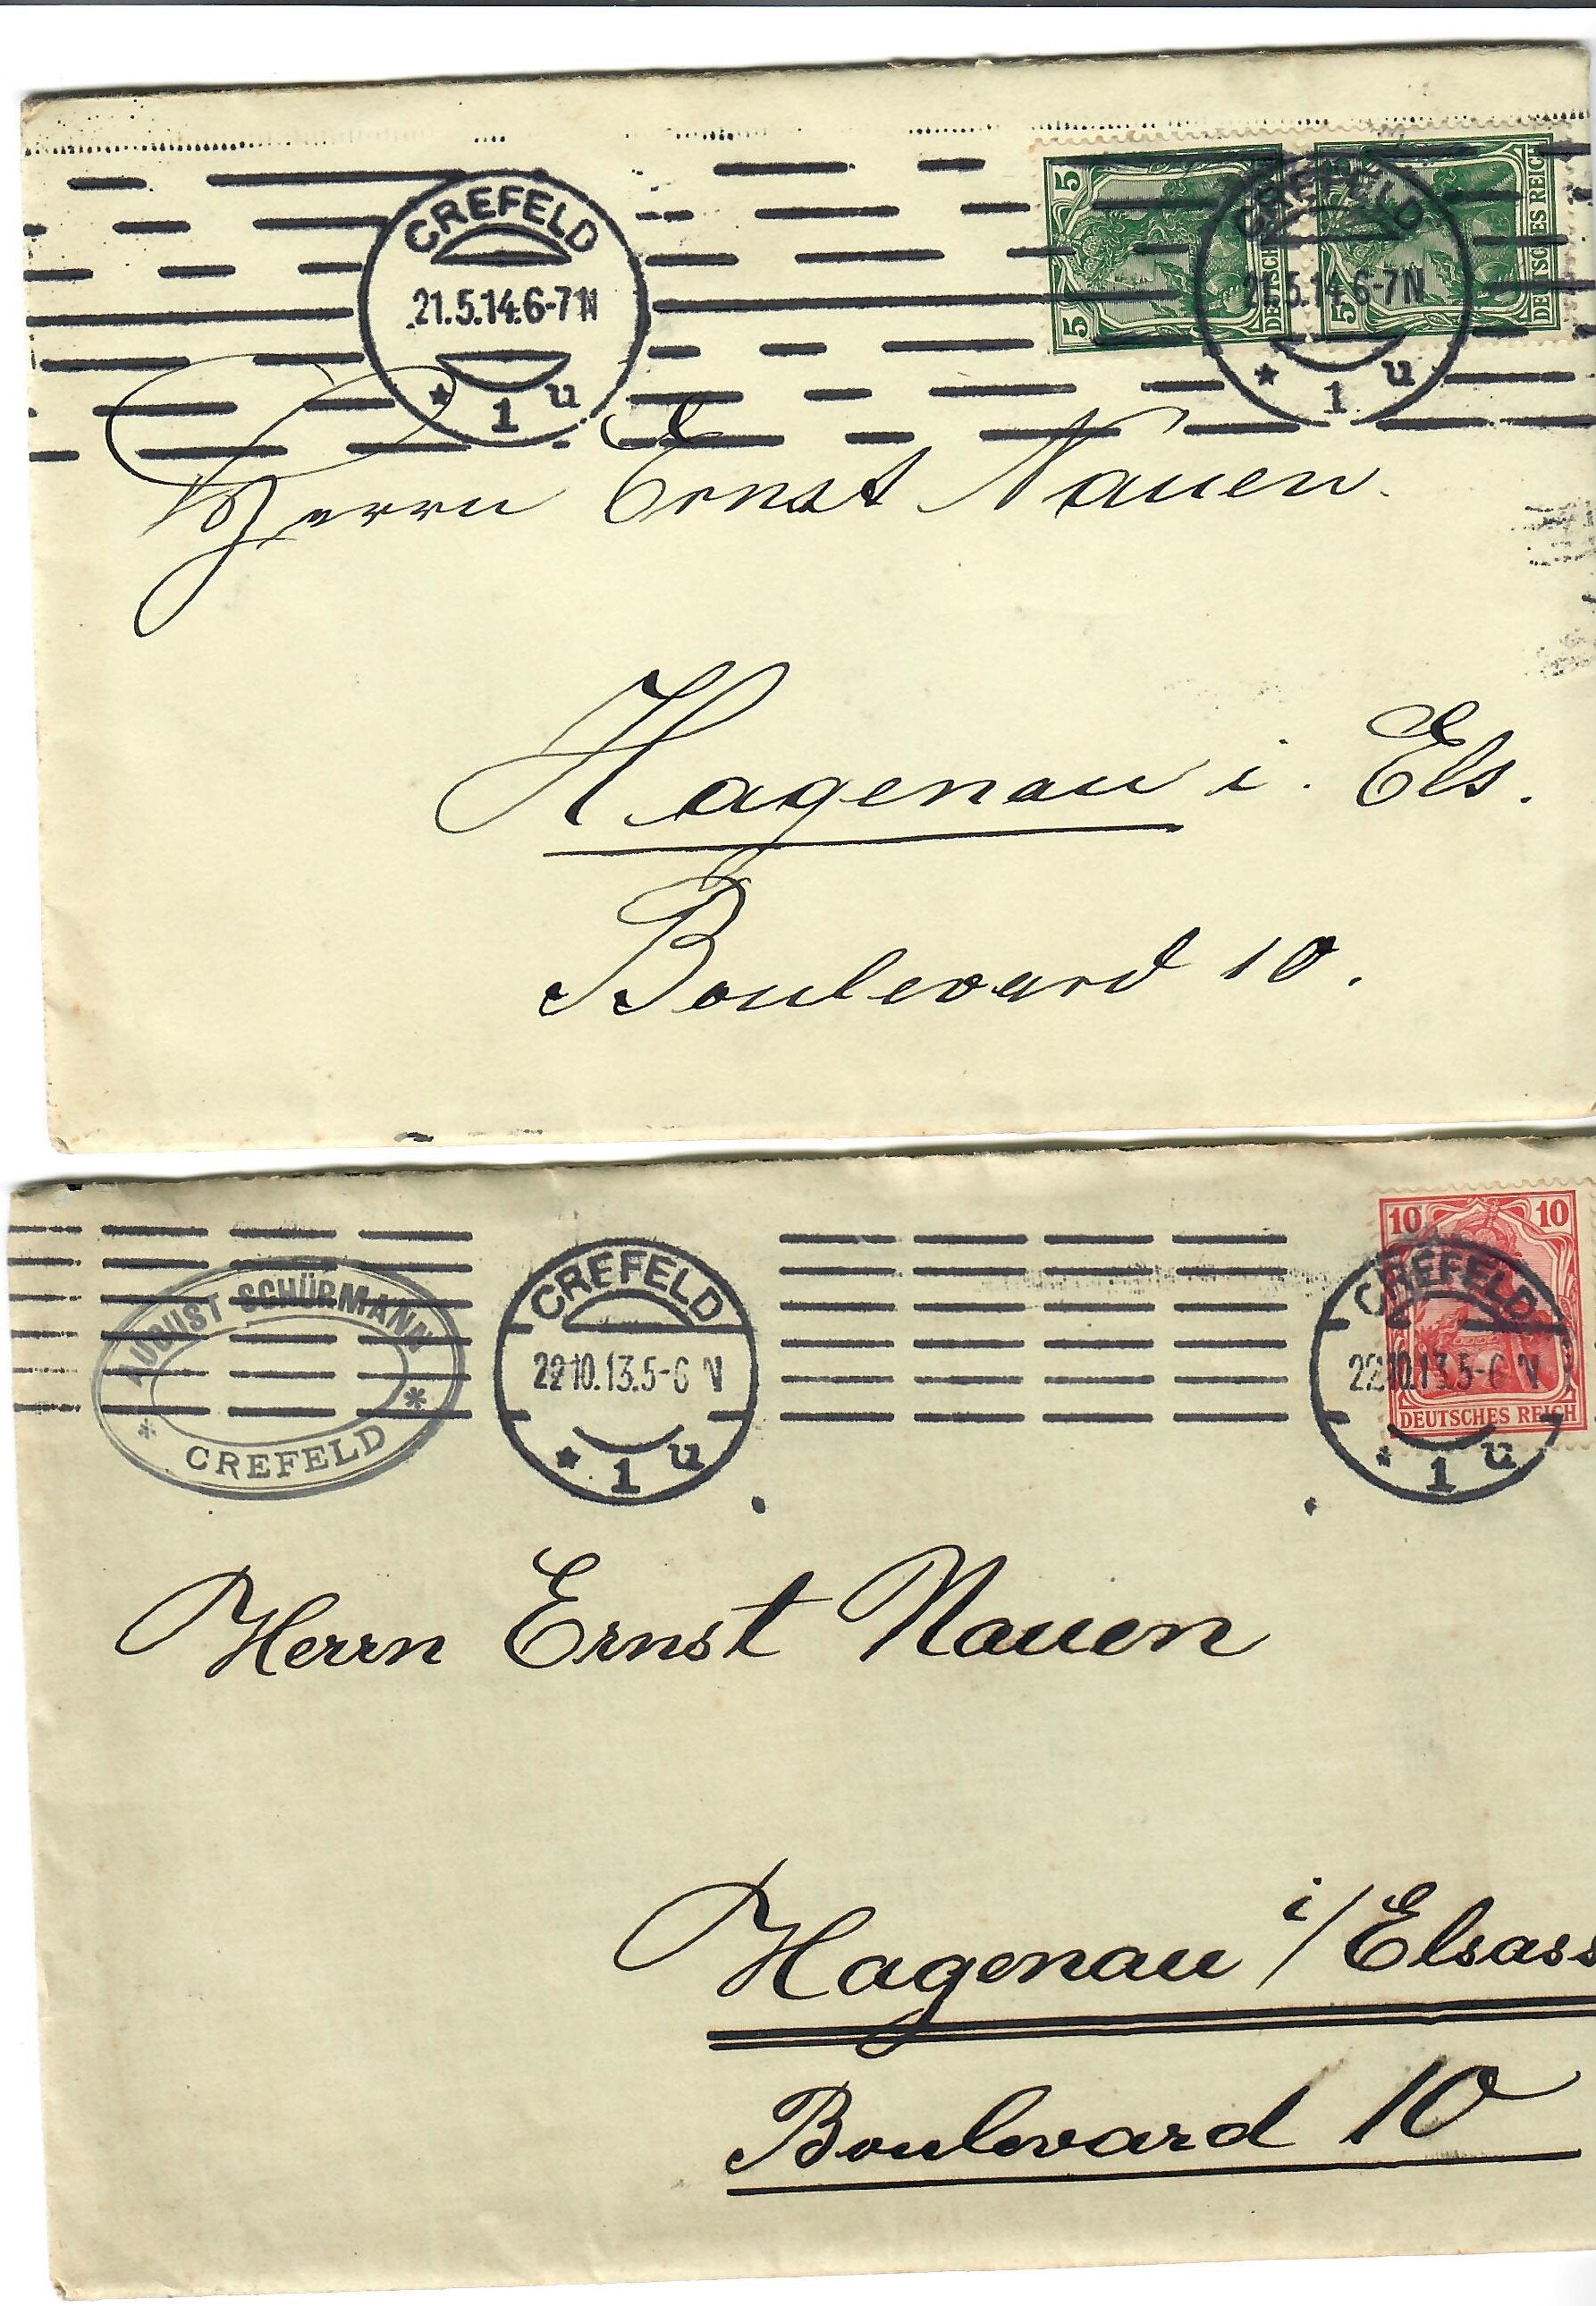 CREFELD
21.5.14.6-7N
* 1 u
5
5
DEUTSCHES REICH
5
DEUTSCHES REICH
CREFELD
21.5.14.6-7N
* 1 u
Herrn Ernst Nauen.
Hagenau i. Els.
Boulevard 10.
AUGUST SCHÜRMANN
* CREFELD *
CREFELD
22.10.13.5-6 N
* 1 u
10 10
DEUTSCHES REICH
CREFELD
22.10.13.5-6 N
* 1 u
Herrn Ernst Nauen
Hagenau i/Elsass
Boulevard 10